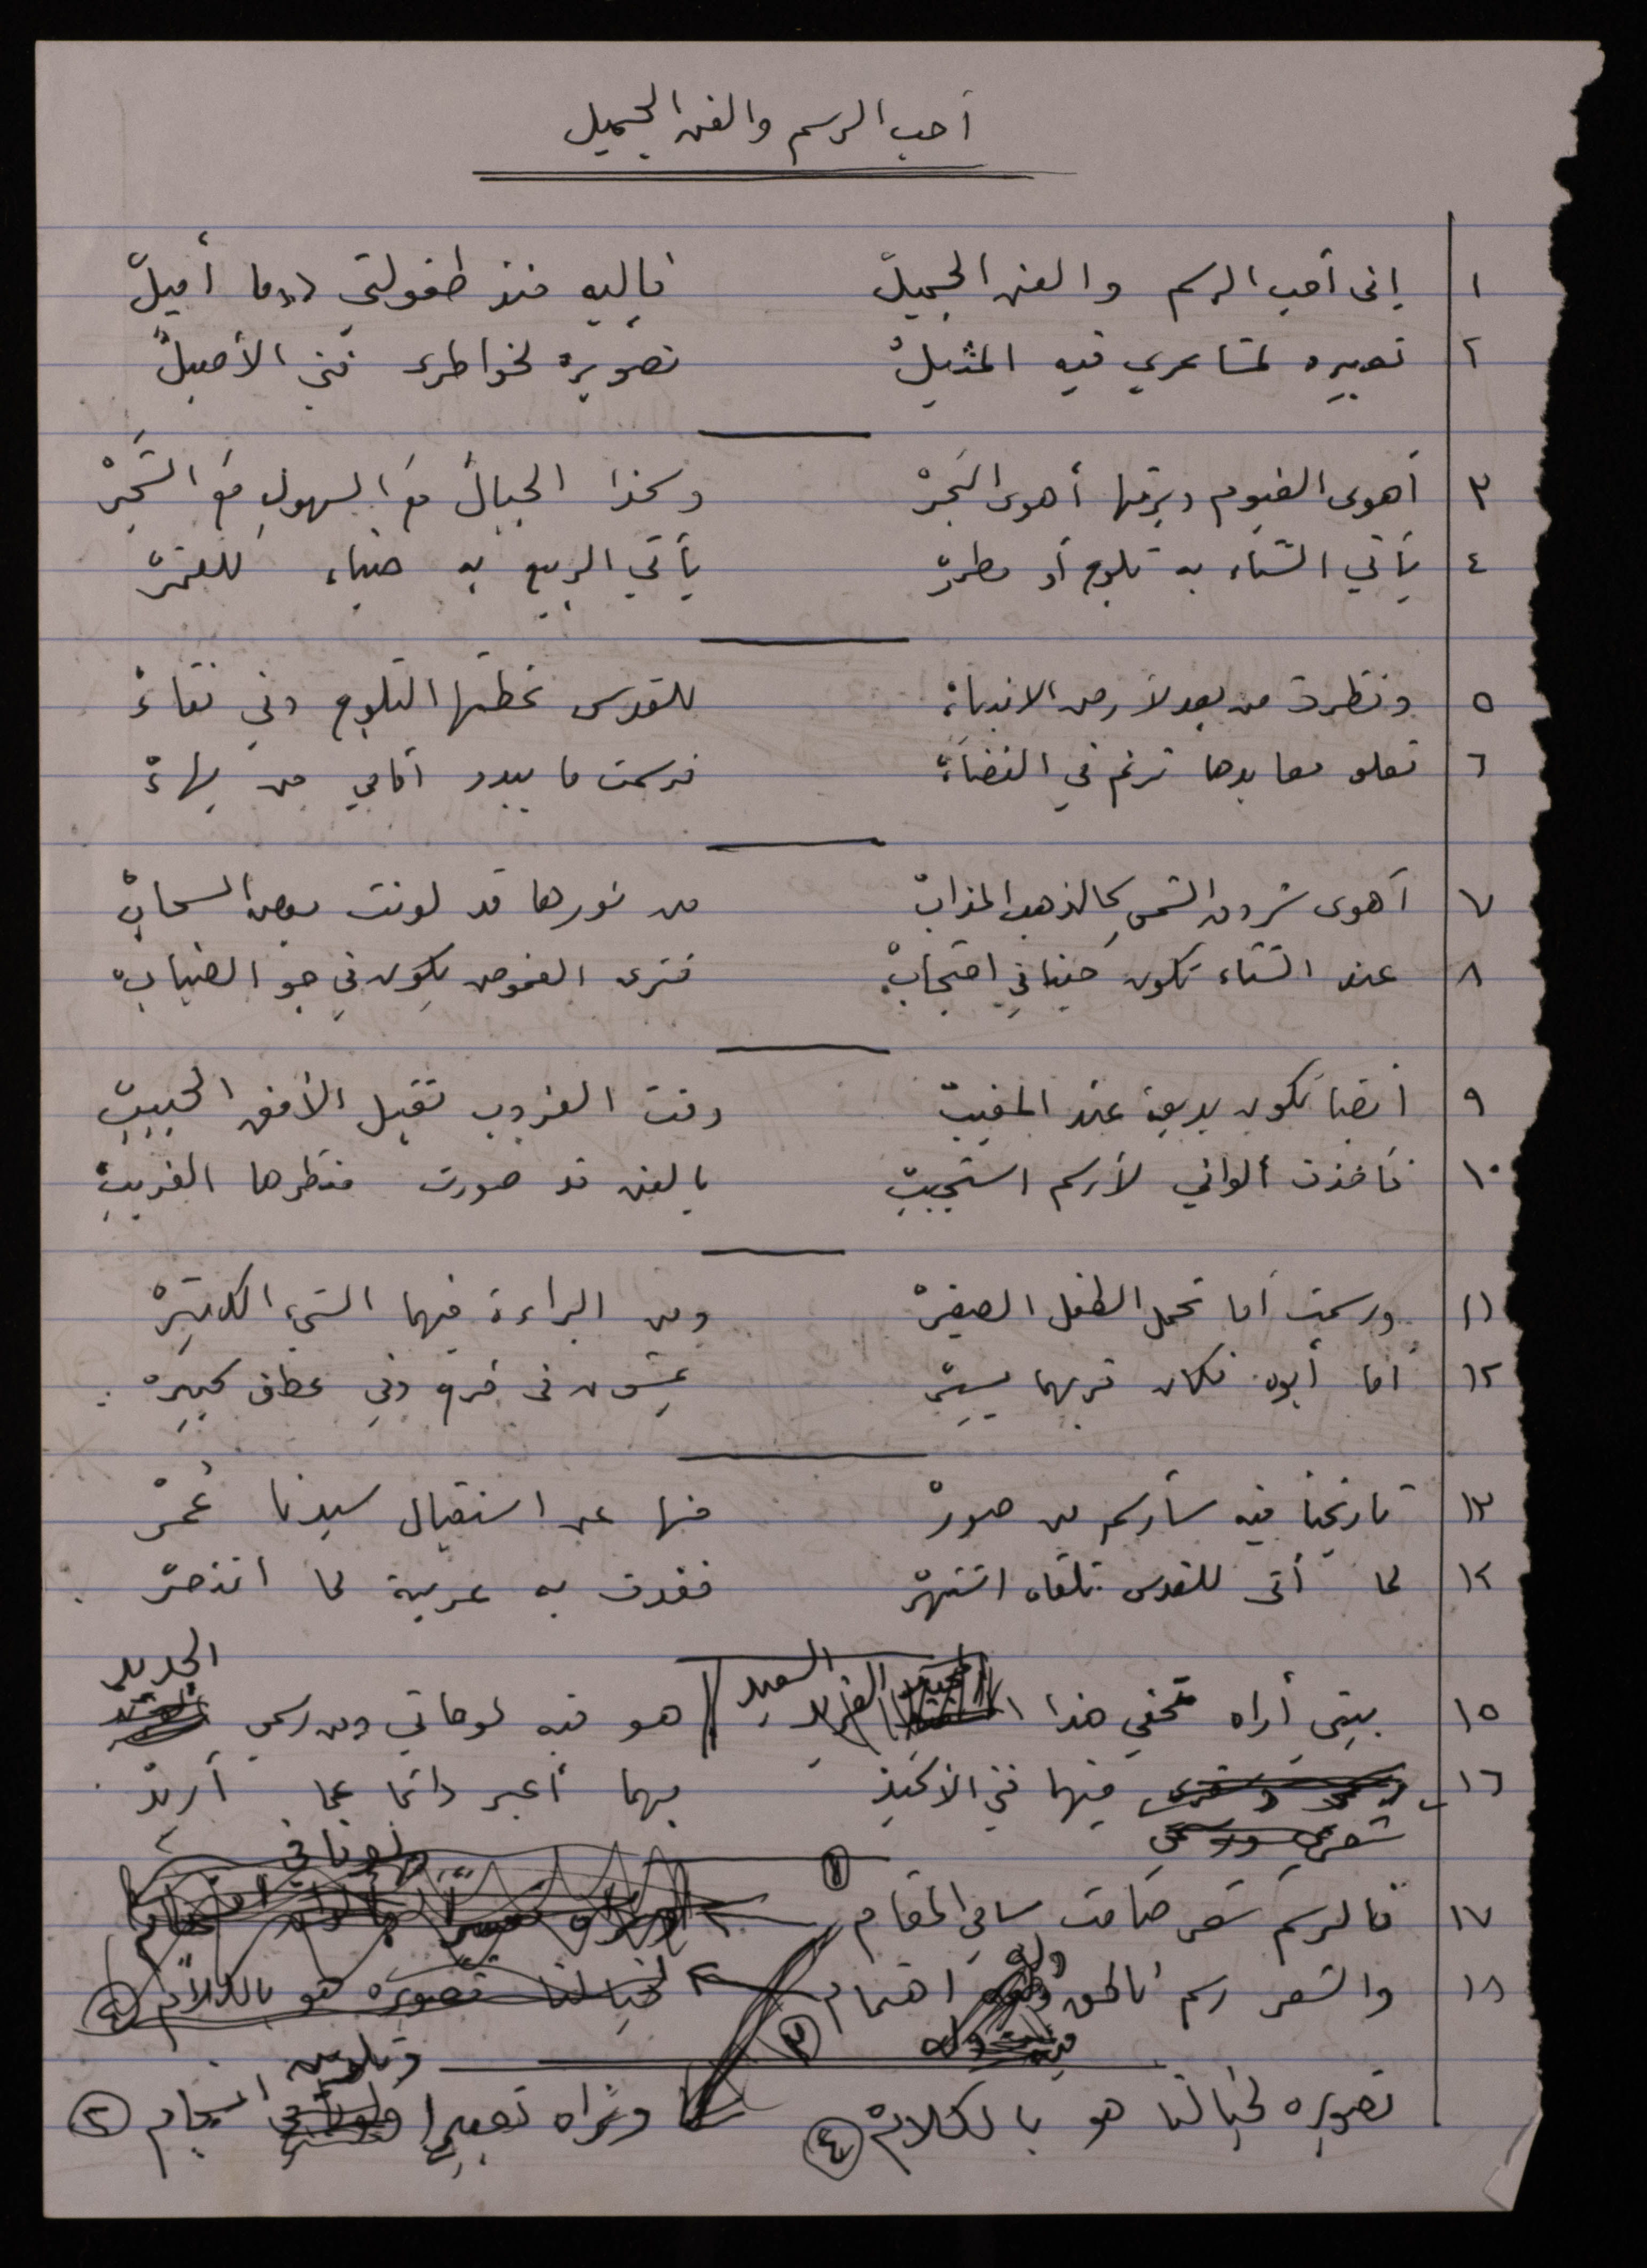 أحب الرسم والفن الجميل
١ إني أحب الرسم والفن الجميلْ فإليه منذ طفولتي دوما أميلْ
٢ تعبيره لمشاعري فيه المثيلْ تصويره لخواطري فني الأصيلْ
٣ أهوى الغيوم وبرقها أهوى البَحرْ وكذا الجبالُ معَ السهولِ معَ الشَجرْ
٤ يأتي الشتاء به ثلوج أو مطرْ يأتي الربيع به ضياء للقمرْ
٥ ونظرت من بعد لأرض الانبياءْ للقدس غطتها الثلوج وفي نقاءْ
٦ تعلو معابدها ترنم في الفضاءْ فرسمت ما يبدو أمامي من بهاءْ
٧ أهوى شروق الشمسِ كالذهب المذابْ من نورها قد لونت بعض السحابْ
٨ عند الشتاء تكون حينا في احتجابْ فترى الغموض يكون في جو الضبابْ
٩ أيضا تكون بديعة عند المغيبْ وقت الغروب تقبل الأفق الحبيبْ
١٠ فأخذت ألواني لأرسم استجيبْ بالفن قد صورت منظرها الغريبْ
١١ ورسمت أما تحمل الطفل الصغيرْ ومن البراءة فيهما الشيء الكثيرْ
١٢ أما أبوه فكان قربهما يسيرْ يمشون في فرح وفي عطف كبيرْ
١٣ تاريخنا فيه سأرسم من صورْ منها عن استقبال سيدنا عُمرْ
١٤ لما أتى للقدس تلقاه اشتهرْ فغدت به عربية لما انتصرْ
١٥ بيتي أراه متحفي هذا السعيد هو فيه لوحاتي ومن رسمي الجديد
١٦ فيهما فني الاكيد بهما أعبر دائما عما أريدْ
١٧ فالرسم شعر صامت سامي المقام ١
١٨ والشعر رسم ناطق وله اهتمام ٣
تصويره لخيالنا هو بالكلامْ ٤ ونراه تعبيرا وتلوين انسجام ٢